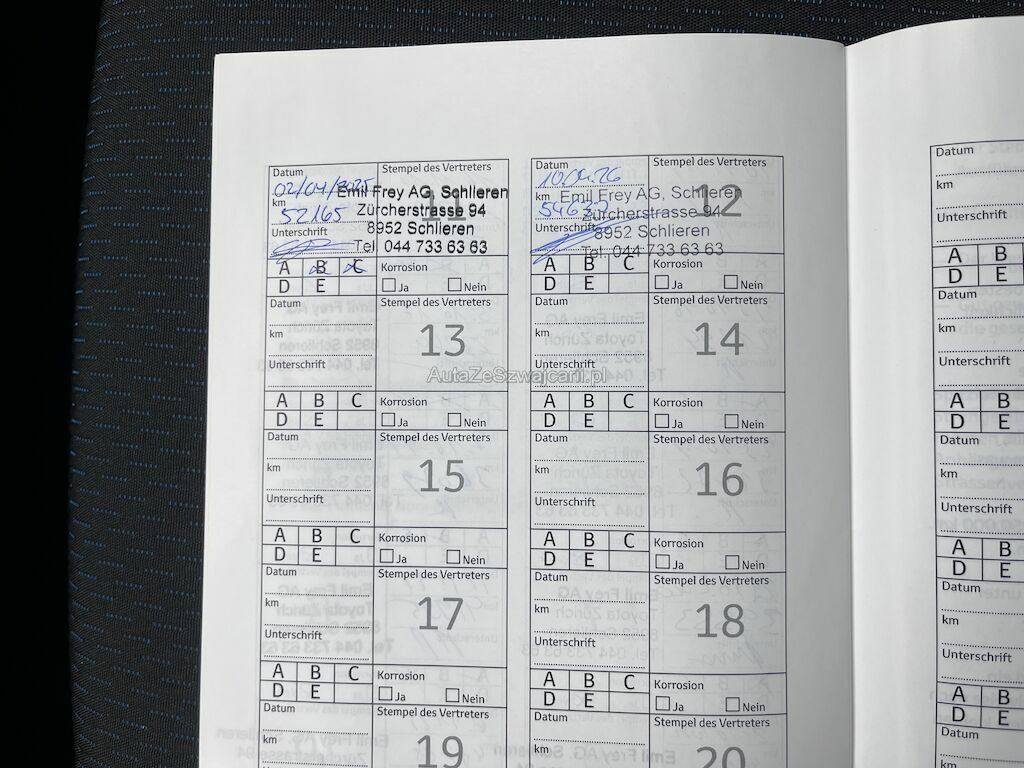 Datum
Stempel des Vertreters
02/04/2025
Emil Frey AG, Schlieren
km
11
52165
Zürcherstrasse 94
Unterschrift
8952 Schlieren
Tel. 044 733 63 63
A B C
Korrosion
D E
Ja Nein
Datum
Stempel des Vertreters
10.04.26
Emil Frey AG, Schlieren
km
12
Zürcherstrasse 94
Unterschrift
8952 Schlieren
Tel. 044 733 63 63
A B C
Korrosion
D E
Ja Nein
Datum
Stempel des Vertreters
km
13
Unterschrift
A B C
Korrosion
D E
Ja Nein
Datum
Stempel des Vertreters
km
14
Unterschrift
A B C
Korrosion
D E
Ja Nein
AutaZeSzwajcarii.pl
Datum
Stempel des Vertreters
km
15
Unterschrift
A B C
Korrosion
D E
Ja Nein
Datum
Stempel des Vertreters
km
16
Unterschrift
A B C
Korrosion
D E
Ja Nein
Datum
Stempel des Vertreters
km
17
Unterschrift
A B C
Korrosion
D E
Ja Nein
Datum
Stempel des Vertreters
km
18
Unterschrift
A B C
Korrosion
D E
Ja Nein
Datum
Stempel des Vertreters
km
19
Datum
Stempel des Vertreters
km
20
Datum
km
Unterschrift
A B
D E
Datum
km
Unterschrift
A B
D E
Datum
km
Unterschrift
A B
D E
Datum
km
Unterschrift
A B
D E
Datum
km